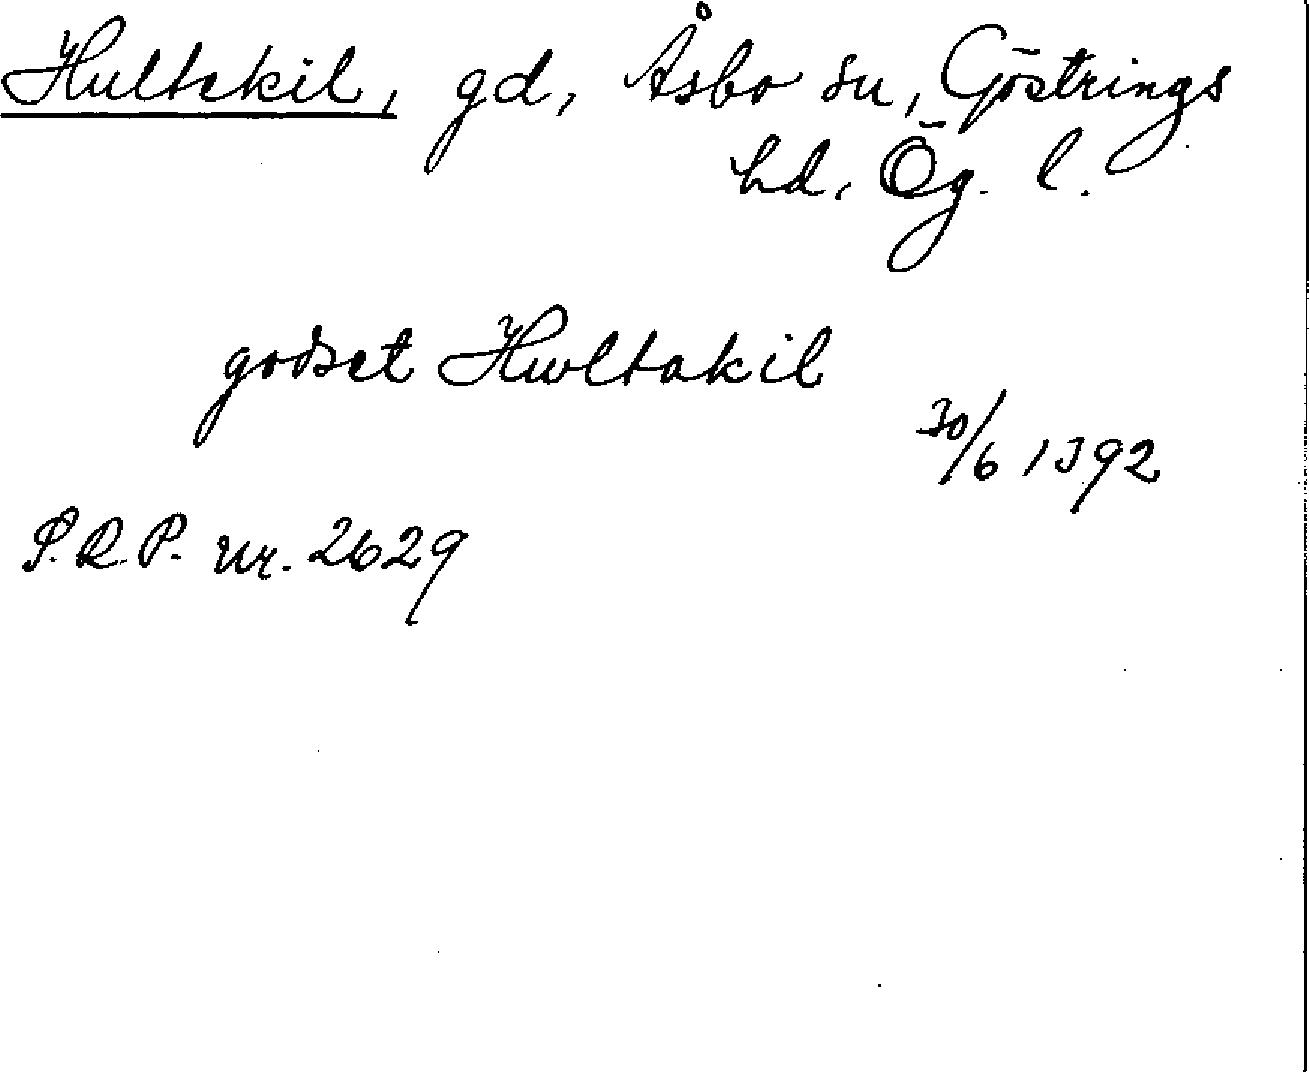 Hultekil, gd, Åsbo sn, Göstrings
hd, Ög. l.
godset Hwltakil
30/6 1392
S.R.P. nr. 2629